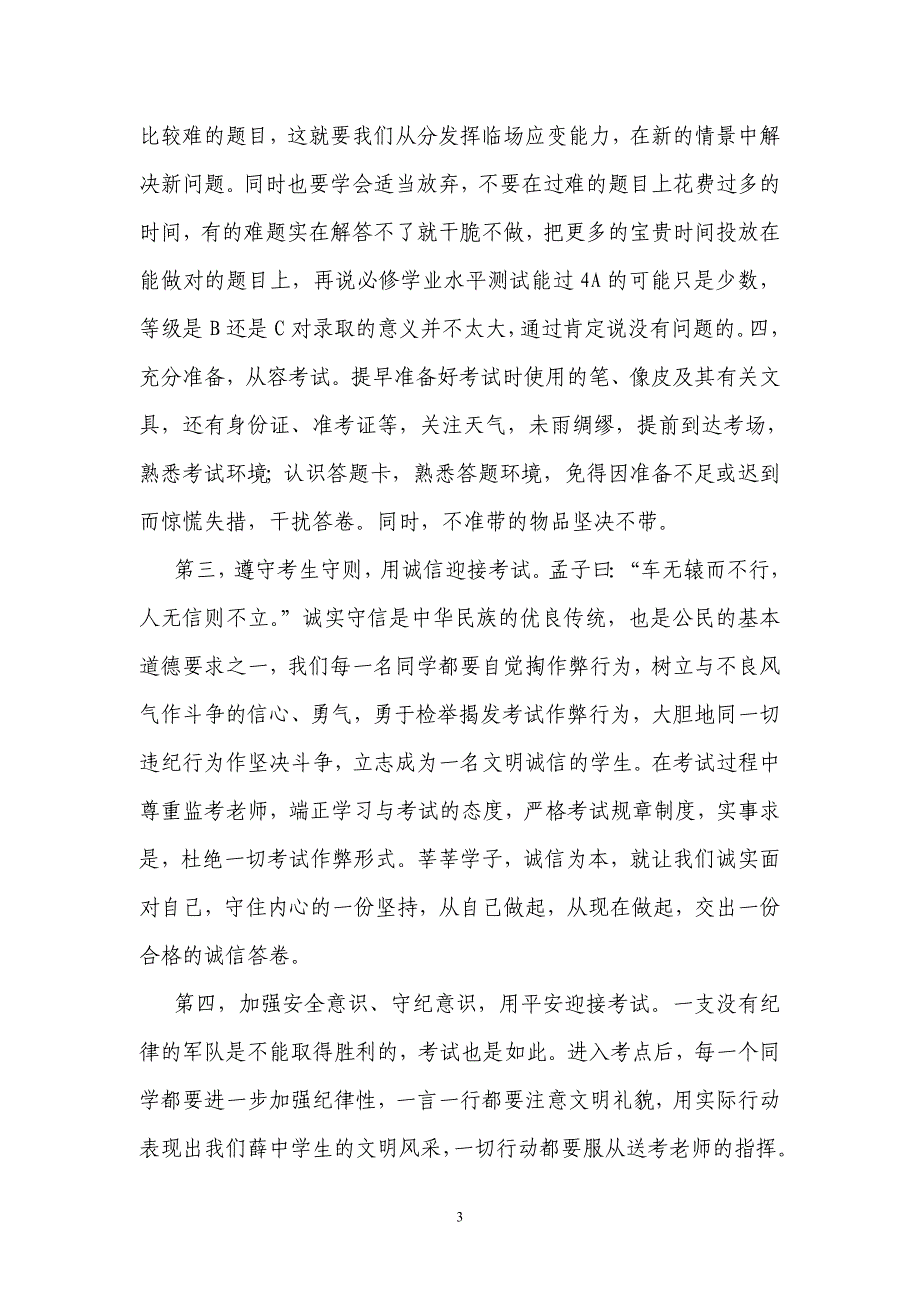 比较难的题目，这就要我们从分发挥临场应变能力，在新的情景中解
决新问题。同时也要学会适当放弃，不要在过难的题目上花费过多的
时间，有的难题实在解答不了就干脆不做，把更多的宝贵时间投放在
能做对的题目上，再说必修学业水平测试能过 4A 的可能只是少数，
等级是 B 还是 C 对录取的意义并不太大，通过肯定说没有问题的。四，
充分准备，从容考试。提早准备好考试时使用的笔、像皮及其有关文
具，还有身份证、准考证等，关注天气，未雨绸缪，提前到达考场，
熟悉考试环境；认识答题卡，熟悉答题环境，免得因准备不足或迟到
而惊慌失措，干扰答卷。同时，不准带的物品坚决不带。
第三，遵守考生守则，用诚信迎接考试。孟子曰：“车无辕而不行，
人无信则不立。”诚实守信是中华民族的优良传统，也是公民的基本
道德要求之一，我们每一名同学都要自觉掏作弊行为，树立与不良风
气作斗争的信心、勇气，勇于检举揭发考试作弊行为，大胆地同一切
违纪行为作坚决斗争，立志成为一名文明诚信的学生。在考试过程中
尊重监考老师，端正学习与考试的态度，严格考试规章制度，实事求
是，杜绝一切考试作弊形式。莘莘学子，诚信为本，就让我们诚实面
对自己，守住内心的一份坚持，从自己做起，从现在做起，交出一份
合格的诚信答卷。
第四，加强安全意识、守纪意识，用平安迎接考试。一支没有纪
律的军队是不能取得胜利的，考试也是如此。进入考点后，每一个同
学都要进一步加强纪律性，一言一行都要注意文明礼貌，用实际行动
表现出我们薛中学生的文明风采，一切行动都要服从送考老师的指挥。
3